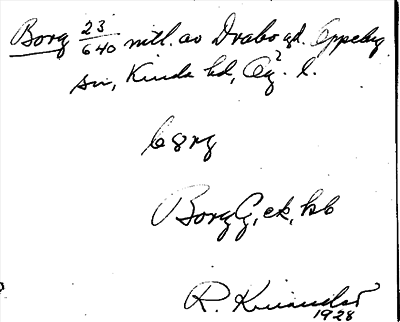 Borg 23/640 mtl. av Drabo gd. Oppeby
sn, Kinda hd, Ög. l.
Borg G, ek, hb
R. Kinander
1928